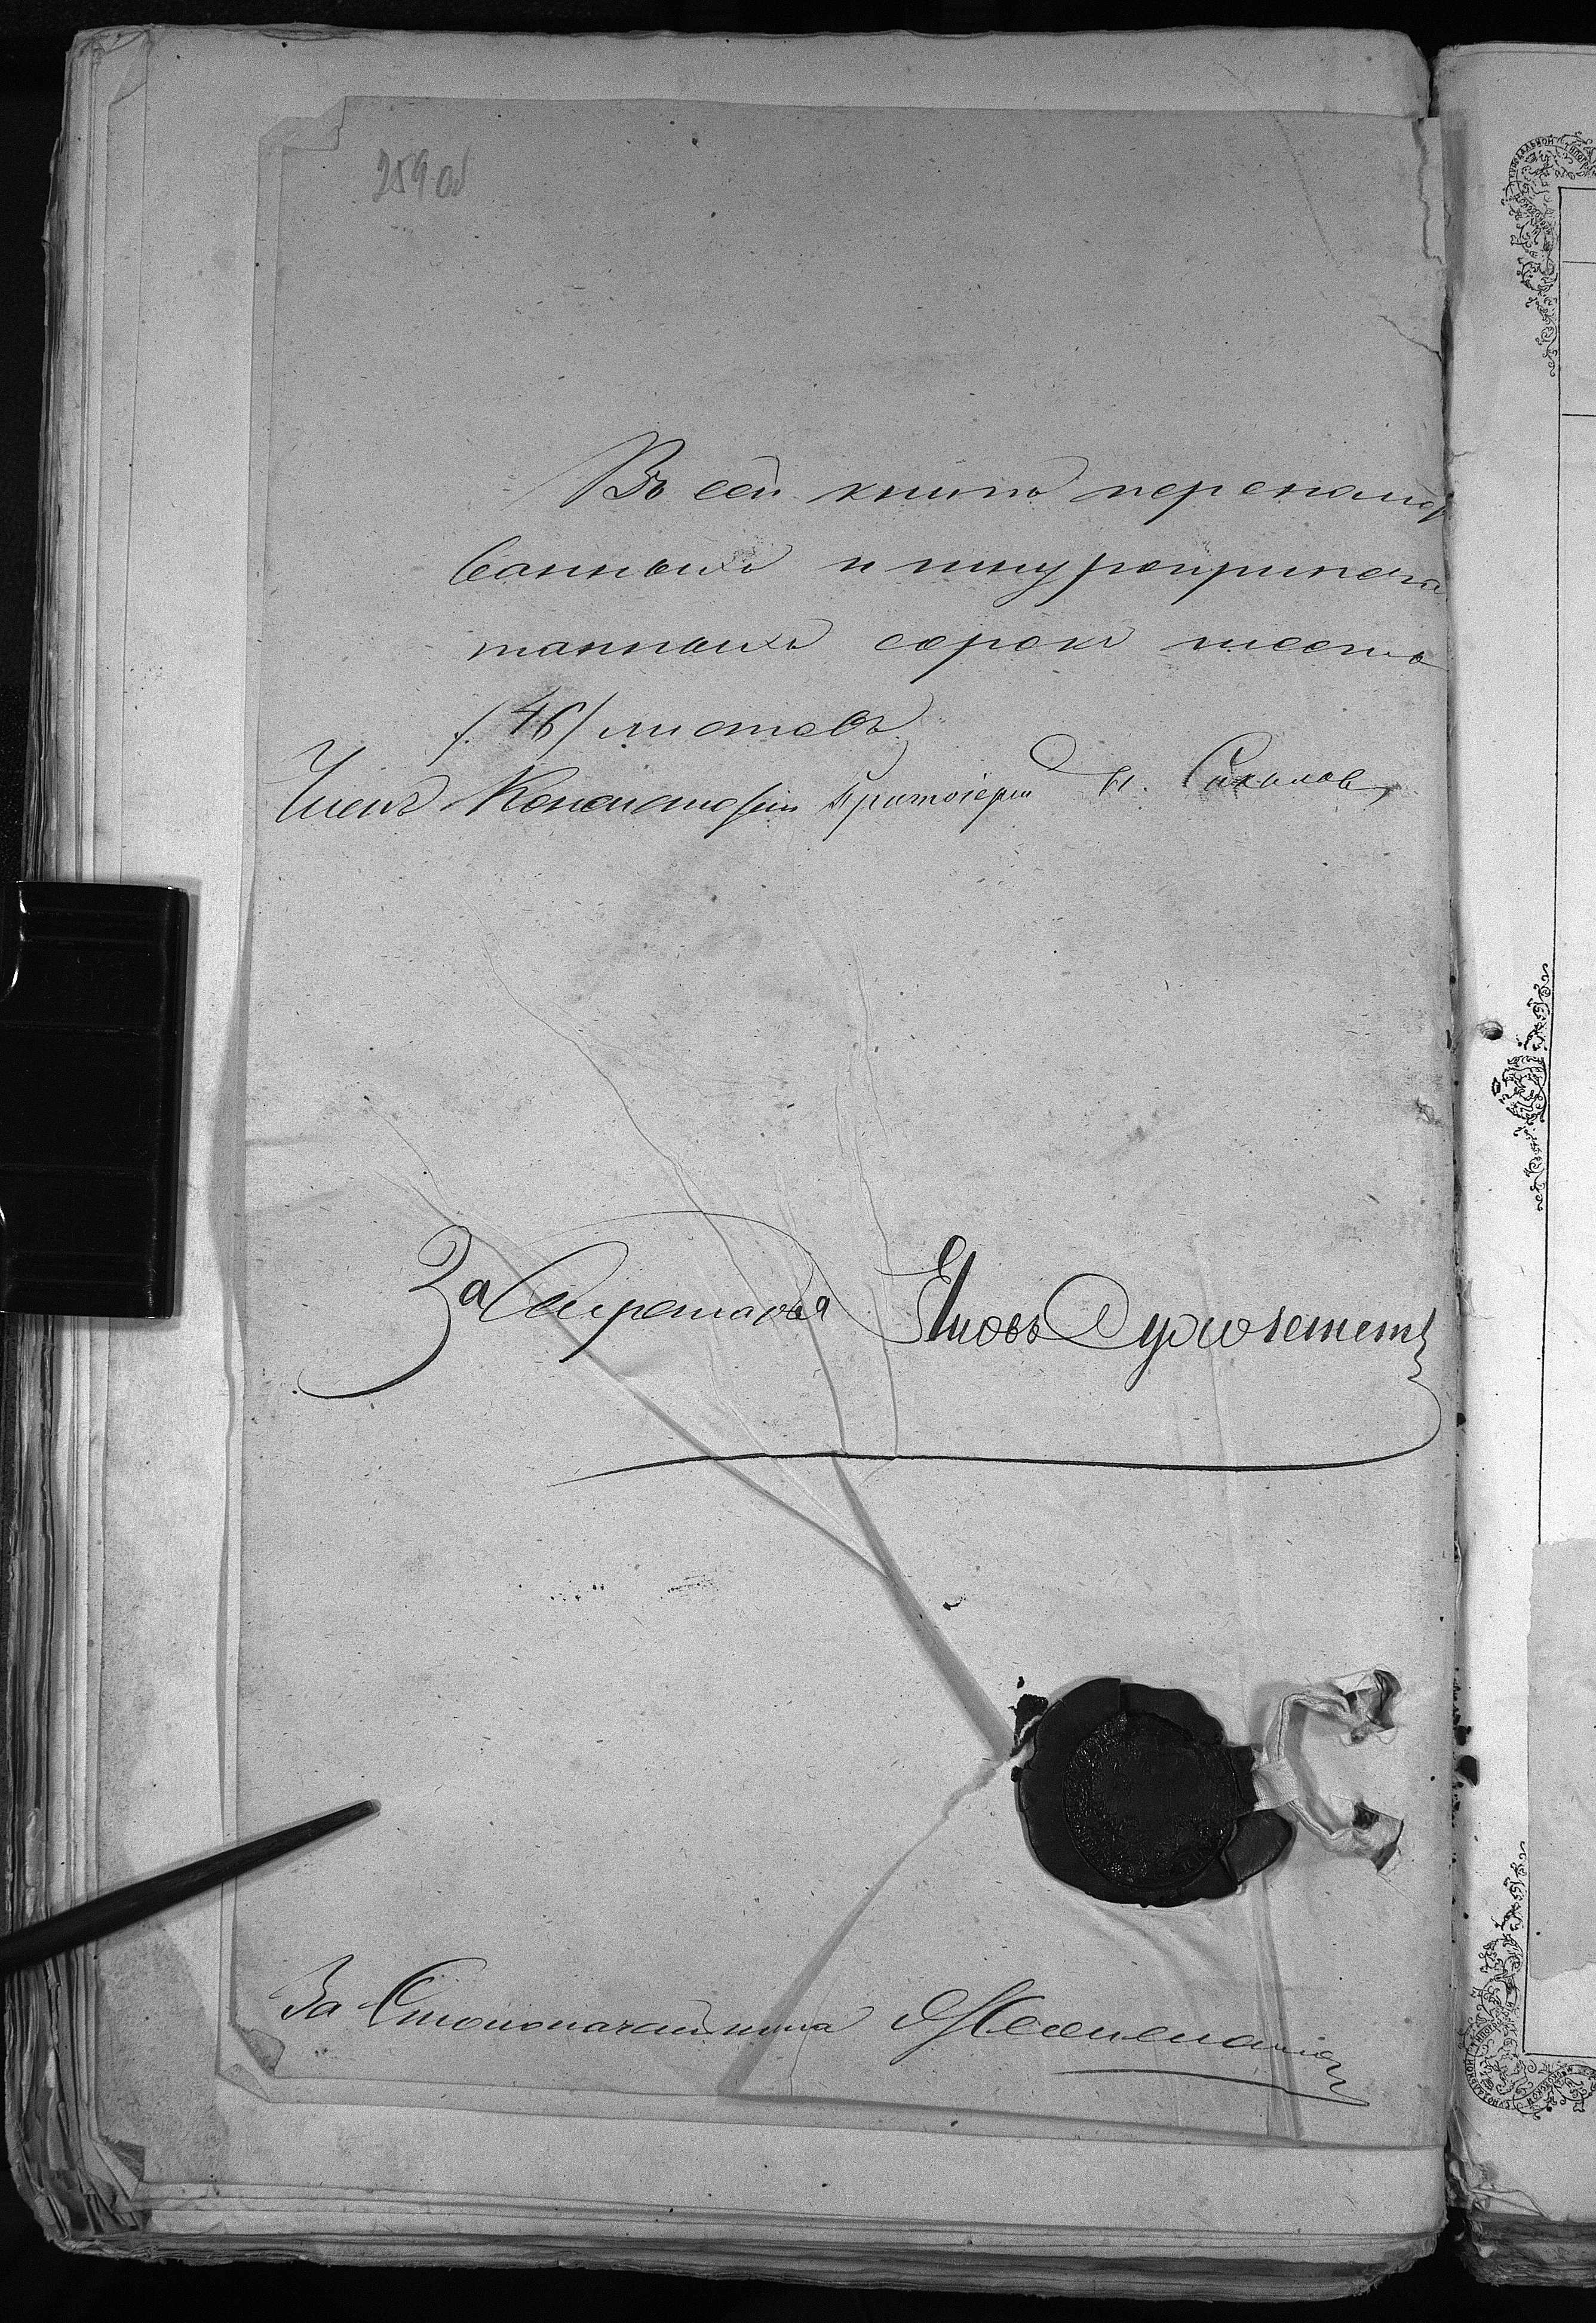 259 об
Въ сей книгѣ перенумеро
ванныхъ и шнуроприпеча
танныхъ сорокъ шесть
/46/ листовъ.
Членъ Консисторіи Протоіерей Н. Соколовъ
За Секретаря Яковъ
За Столоначальника